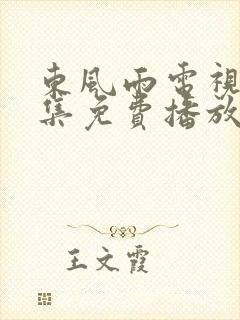 東風雨電視
集免費播放
王文霞